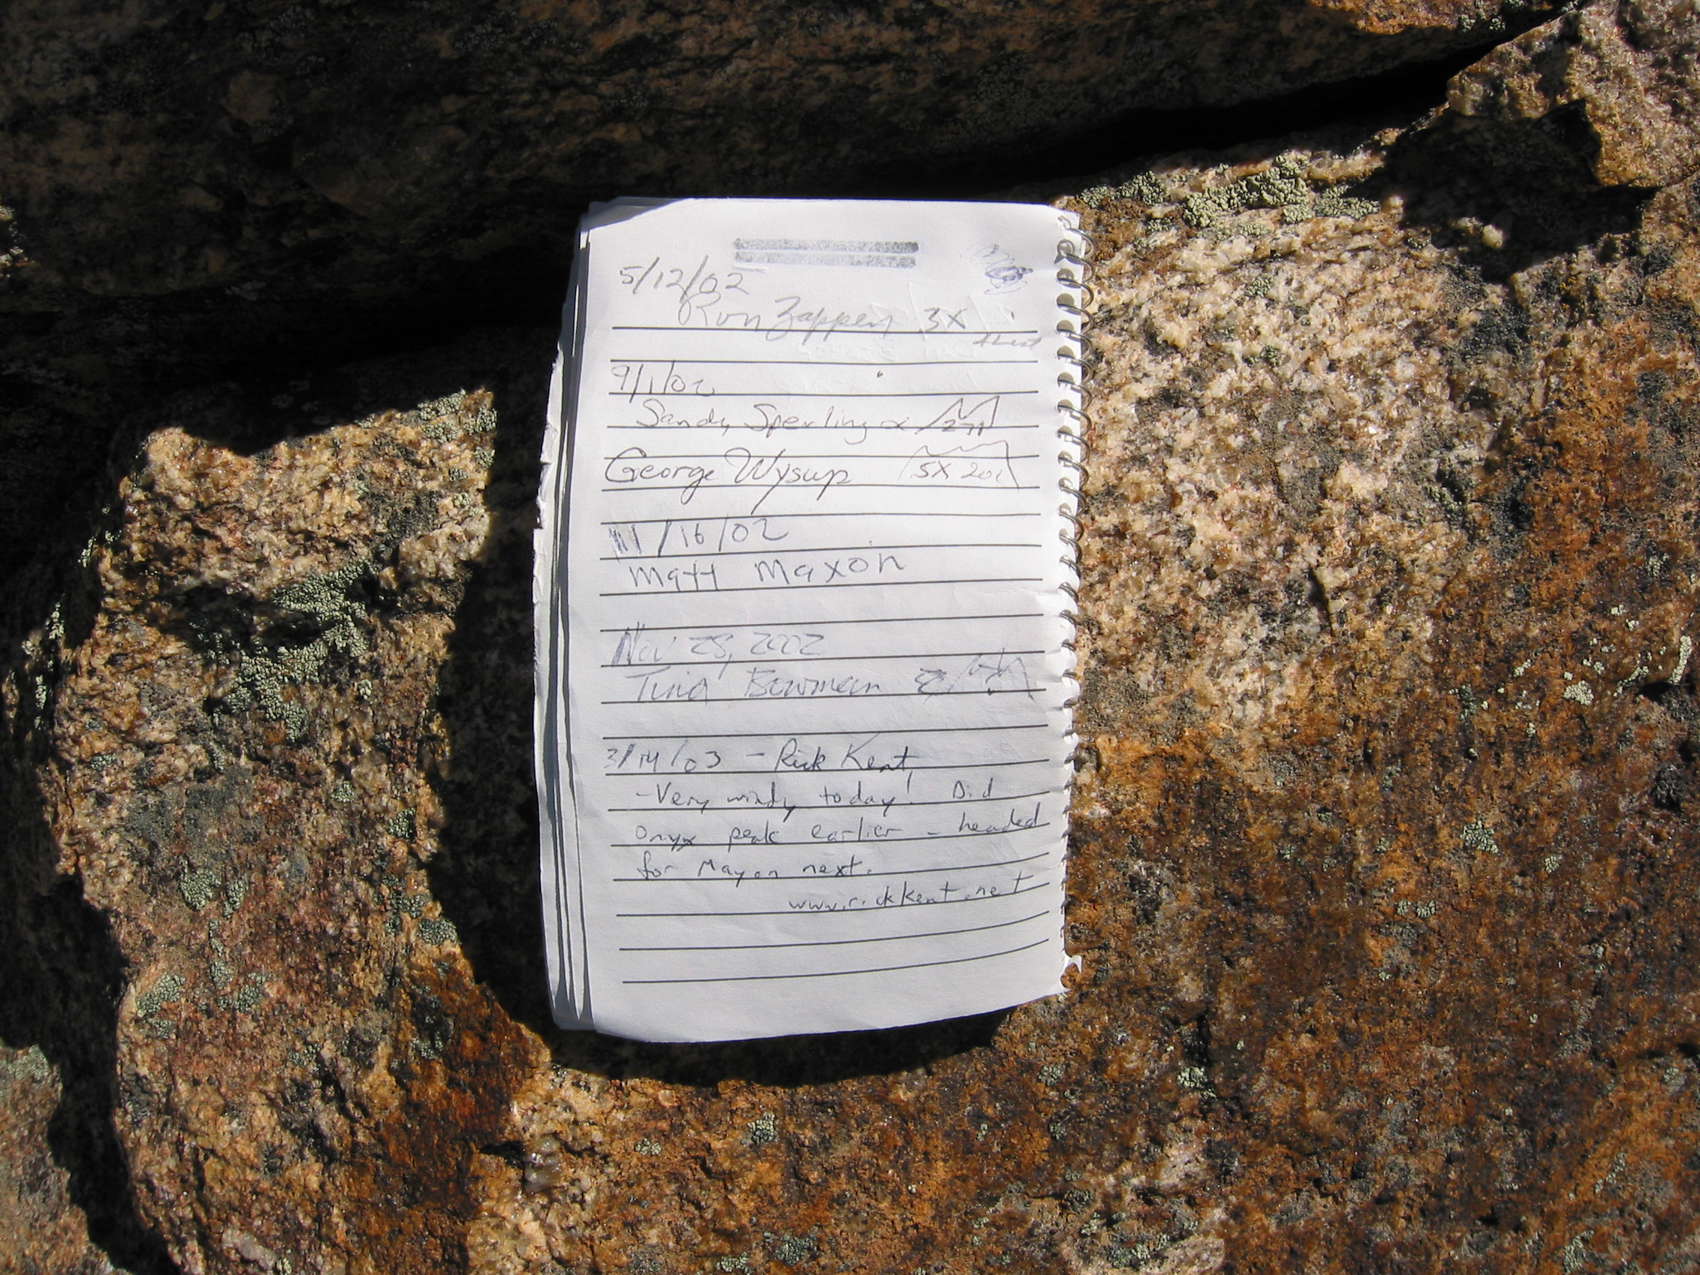 5/12/02
Ron Zappen 3X
9/1/02
Sandy Sperling
George Wysup 5X
11/16/02
Matt Maxon
Nov 28, 2002
Tina Bowman
3/14/03 - Rick Kent
- Very windy today! Did
Onyx peak earlier - headed
for Mayan next.
www.rickkent.net